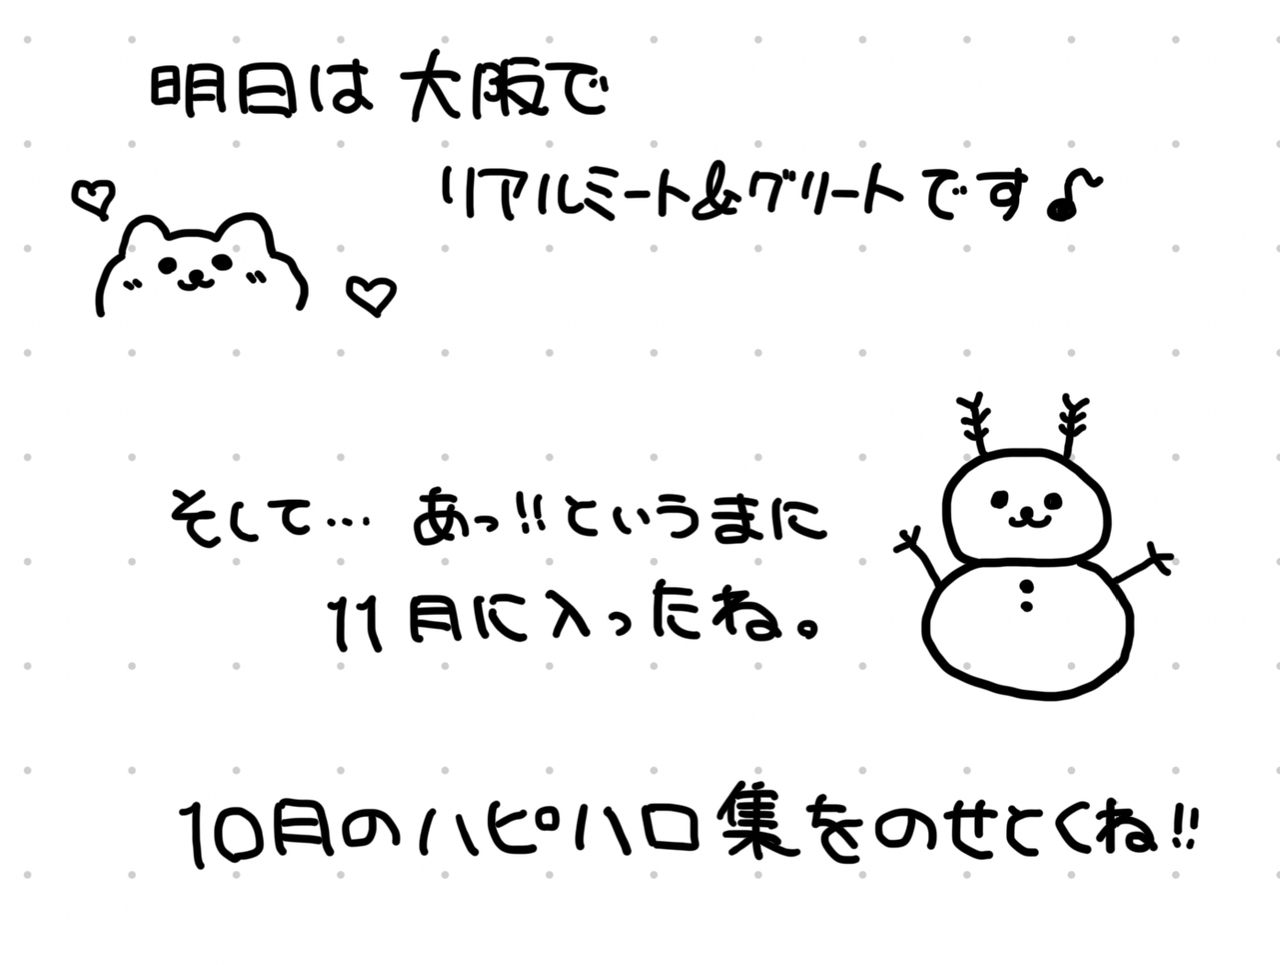 明日は 大阪で
リアルミート&グリートです♪
そして… あっ!!というまに
11月に入ったね。
10月のハピハロ集をのせとくね!!